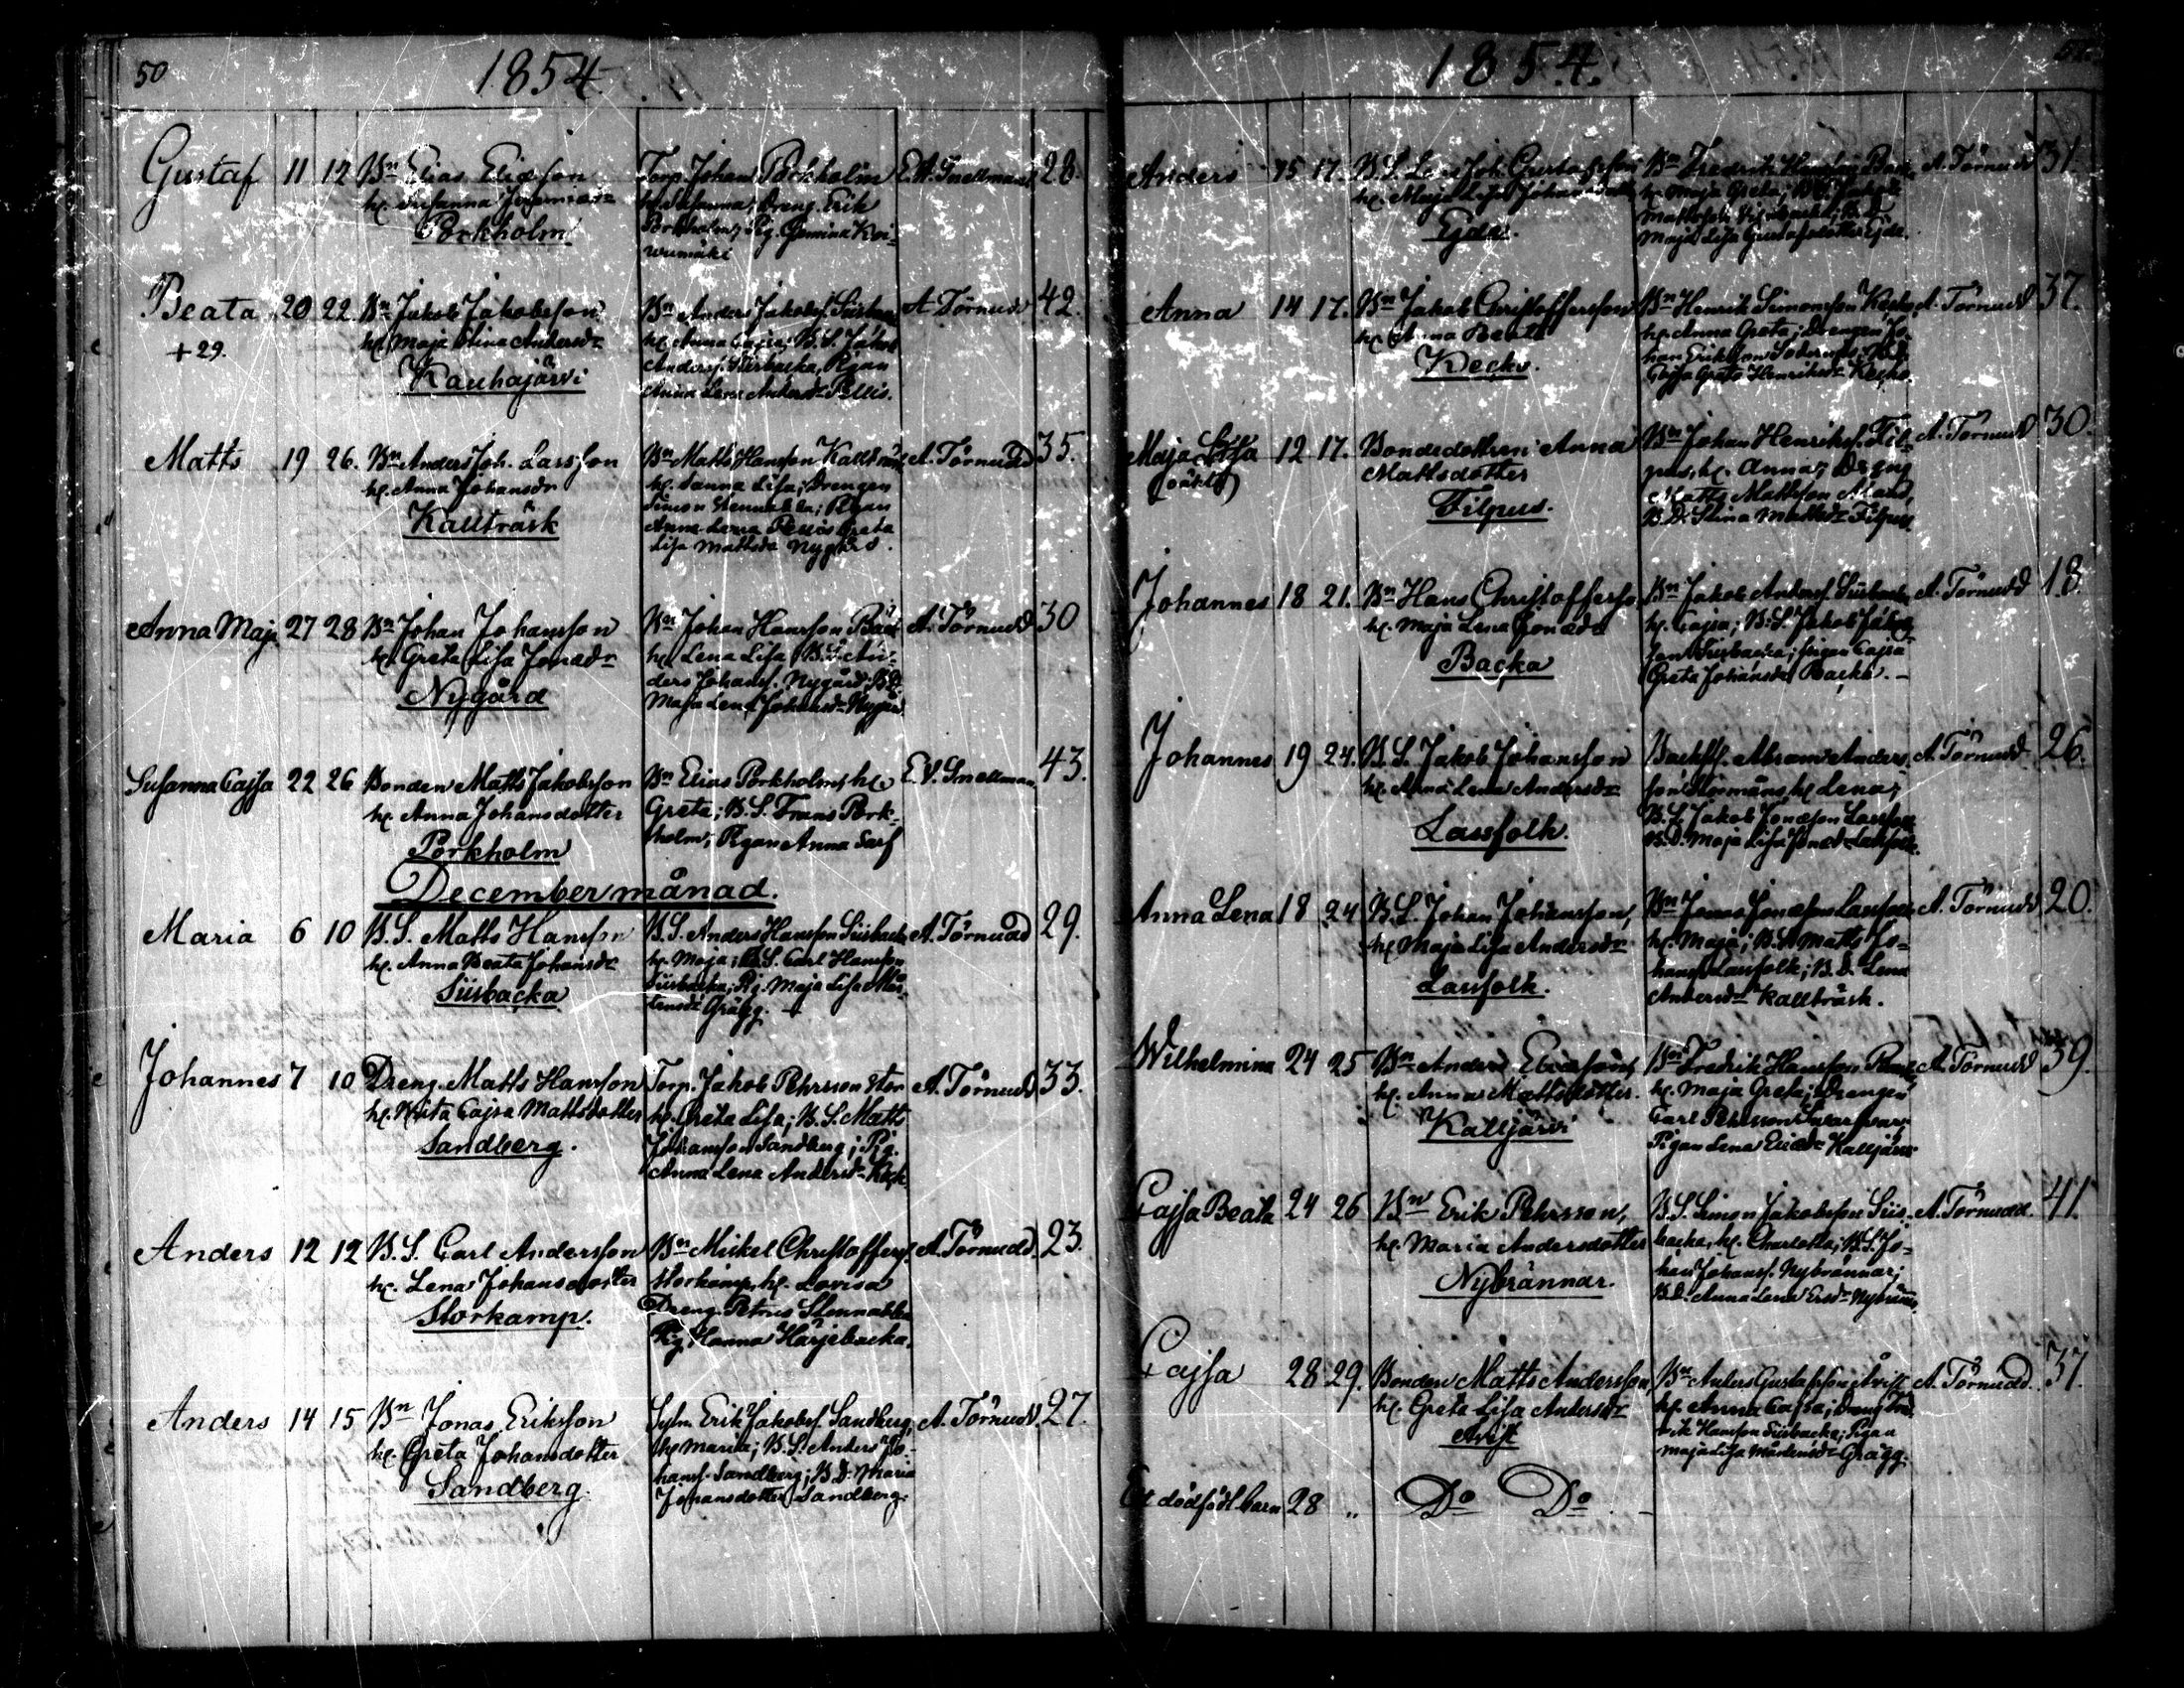 50
1854.
Gustaf 11 12 Bn Elias Eliæson
hu. Susanna Jeremiædr
Porkholm
Torp. Johan Porkholm
hu. Susanna; Dreng. Erik
Porkholm; Pig. Gemina Koi-
wumäki
E. W. Snellman 28.
Beata 20 22. Bn Jakob Jakobsson
+29.
hu. Maja Stina Andersdr
Kauhajärvi
Bn Anders Jakobs. Siisbacka
hu. Anna Cajsa; B. S. Jakob
Anderss. Siisbacka, Pigan
Anna Lena Andersdr Pellis.
A. Törnudd 42.
Matts 19 26. Bn Anders Joh. Lassfon
hu. Anna Johansdr
Kallträsk
Bn Matts Hansson Kallträsk
hu. Sanna Lisa; Drengen
Simon Stennabba; Pigan
Anna Lena Pellis Greta
Lisa Mattsdr Nygård.
A. Törnudd 35.
Anna Maja 27 28 Bn Johan Johansson
hu. Greta Lisa Jonædr
Nygård
Bn Johan Hansson Back
hu. Lena Lisa; B. S. An-
ders Johanss. Nygård; B. D.
Maja Lena Johansdr Nygård.
A. Törnudd 30
Susanna Cajsa 22 26 Bonden Matts Jakobsson
hu. Anna Johansdotter
Porkholm
Bn Elias Porkholm, hu
Greta; B. S. Frans Pork-
holm; Pigan Anna Sarf
E. V. Snellman 43.
December månad.
Maria 6 10 B. S. Matts Hansson
hu. Anna Beata Johansdr
Siisbacka
B. S. Anders Hansson Siisbacka
hu. Maja; B. S. Carl Hansson
Siisbacka; Pig. Maja Lisa Mår-
tensdr Grägg.
A. Törnudd 29.
Johannes 7 10 Dreng. Matts Hansson
hu. Brita Cajsa Mattsdotter
Sandberg.
Torp. Jakob Pehrsson Stor
hu. Greta Lisa; B. S. Matts
Johansson Sandberg; Pig.
Anna Lena Andersdr Keck.
A. Törnudd 33.
Anders 12 12 B. S. Carl Andersson
hu. Lena Johansdotter
Storkamp.
Bn Mickel Christofferss.
Storkamp, hu. Lovisa
Dreng. Petrus Stennabba
Pig. Hanna Härjebacka.
A. Törnudd 23.
Anders 14 15 Bn Jonas Eriksson
hu. Greta Johansdotter
Sandberg.
Sytn. Erik Jakobss. Sandberg,
hu Maria; B. S. Anders Jo-
hanss. Sandberg; B. D. Maria
Johansdotter Sandberg.
A. Törnudd 27.
1854.
Anders 15 17. B. S. Joh. Gustafsson
hu. Maja Lisa Johansdr
Ejda.
Bn Fredrik Hansson Back
hu. Maja Greta; B. S. Jakob
Maja Lisa Gustafsdotter Ejda.
A. Törnudd 31.
Anna 14 17. Bn Jakob Christoffersson
hu. Anna Beata
Kecko.
Bn Henrik Simonsson Kecko,
hu. Anna Greta; Drengen Jo-
han Eriksson
Cajsa Greta Henriksdr Kecko.
A. Törnudd 37.
Maja Lisa 12 17. Bondedottren Anna
(oäkta)
Mattsdotter
Filpus.
Bn Johan Henrikss. Fil-
pus, hu. Anna; Dreng
Matts Mattsson
B. D. Stina Mattsdr Filpus
A. Törnudd 30.
Johannes 18 21. Bn Hans Christoffersson
hu. Maja Lena Jonædr
Backa
Bn Jakob Anderss. Siisbacka
hu. Cajsa; B. S. Jakob Jakobs-
son Siisbacka; pigan Cajsa
Greta Johansdr Backa.
A. Törnudd 18.
Johannes 19 24. B. S. Jakob Johansson
hu. Anna Lena Andersdr
Lassfolk.
Backst. Abram Anders-
son hu. Lena;
B. S. Jakob Jonæson Lassfolk
B. D. Maja Lisa Jonædr Lassfolk.
A. Törnudd 26.
Anna Lena 18 24 B. S. Johan Johansson,
hu. Maja Lisa Andersdr
Lassfolk.
Bn Jonas Jonæson Lassfolk
hu. Maja; B. S. Matts Jo-
hanss. Lassfolk; B. D. Lena
Andersdr Kallträsk.
A. Törnudd 20.
Wilhelmina 24 25 Bn Anders Eliæson
hu. Anna Mattsdotter.
Kalljärvi
Bn Fredrik Hansson
hu. Maja Greta; Drengen
Carl Pehrsson Svarfvar
Pigan Lena Eliædr Kalljärvi
A. Törnudd 39.
Cajsa Beata 24 26 Bn Erik Pehrsson,
hu. Maria Andersdotter
Nybrännar.
B. S. Simon Jakobsson Siis-
backa, hu. Charlotta; B. S. Jo-
han Johanss. Nybrännar;
B. D. Anna Lena Ersdr Nybrännar
A. Törnudd. 41.
Cajsa 28 29. Bonden Matts Andersson
hu. Greta Lisa Andersdr
Åvist
Bn Anders Gustafsson Åvist
hu. Anna Cajsa; Dreng Fred-
rik Hansson Siisbacka; Pigan
Maja Lisa Mårtensdr Grägg.
A. Törnudd. 37.
Ett dödfödt barn 28 „ Do Do